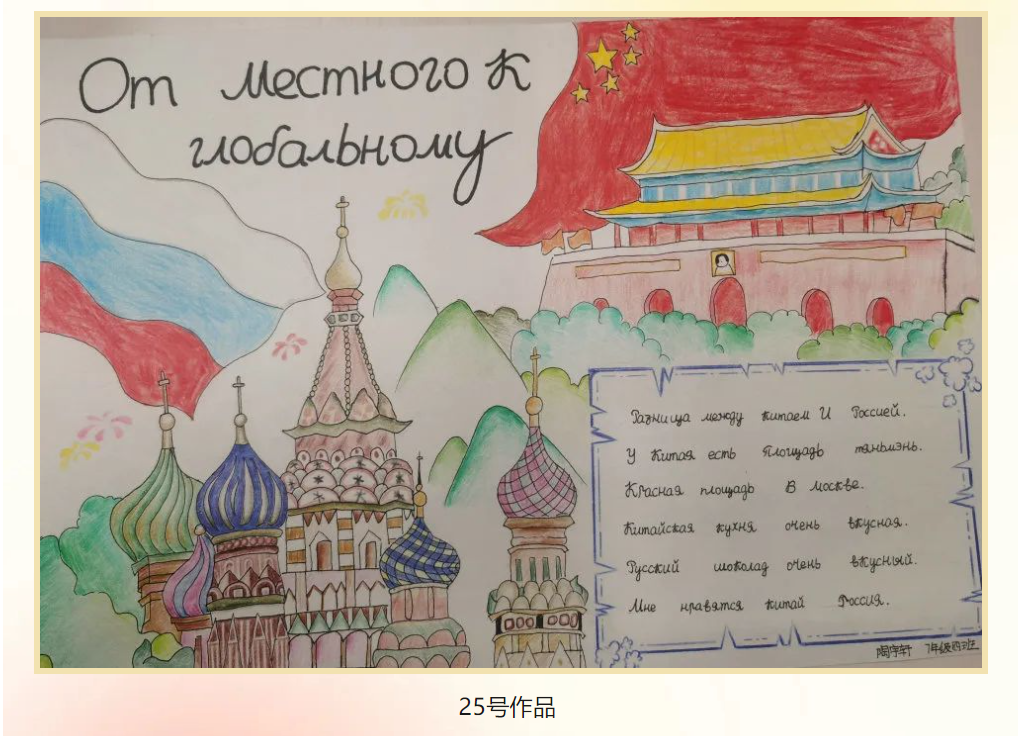 От местного к
глобальному
Разница между китаем И Россией.
У Китая есть Площадь тяньмэнь.
Красная площадь В москве.
Китайская кухня очень вкусная.
Русский шоколад очень вкусный.
Мне нравятся китай Россия.
陶宇轩 7年级四班
25号作品